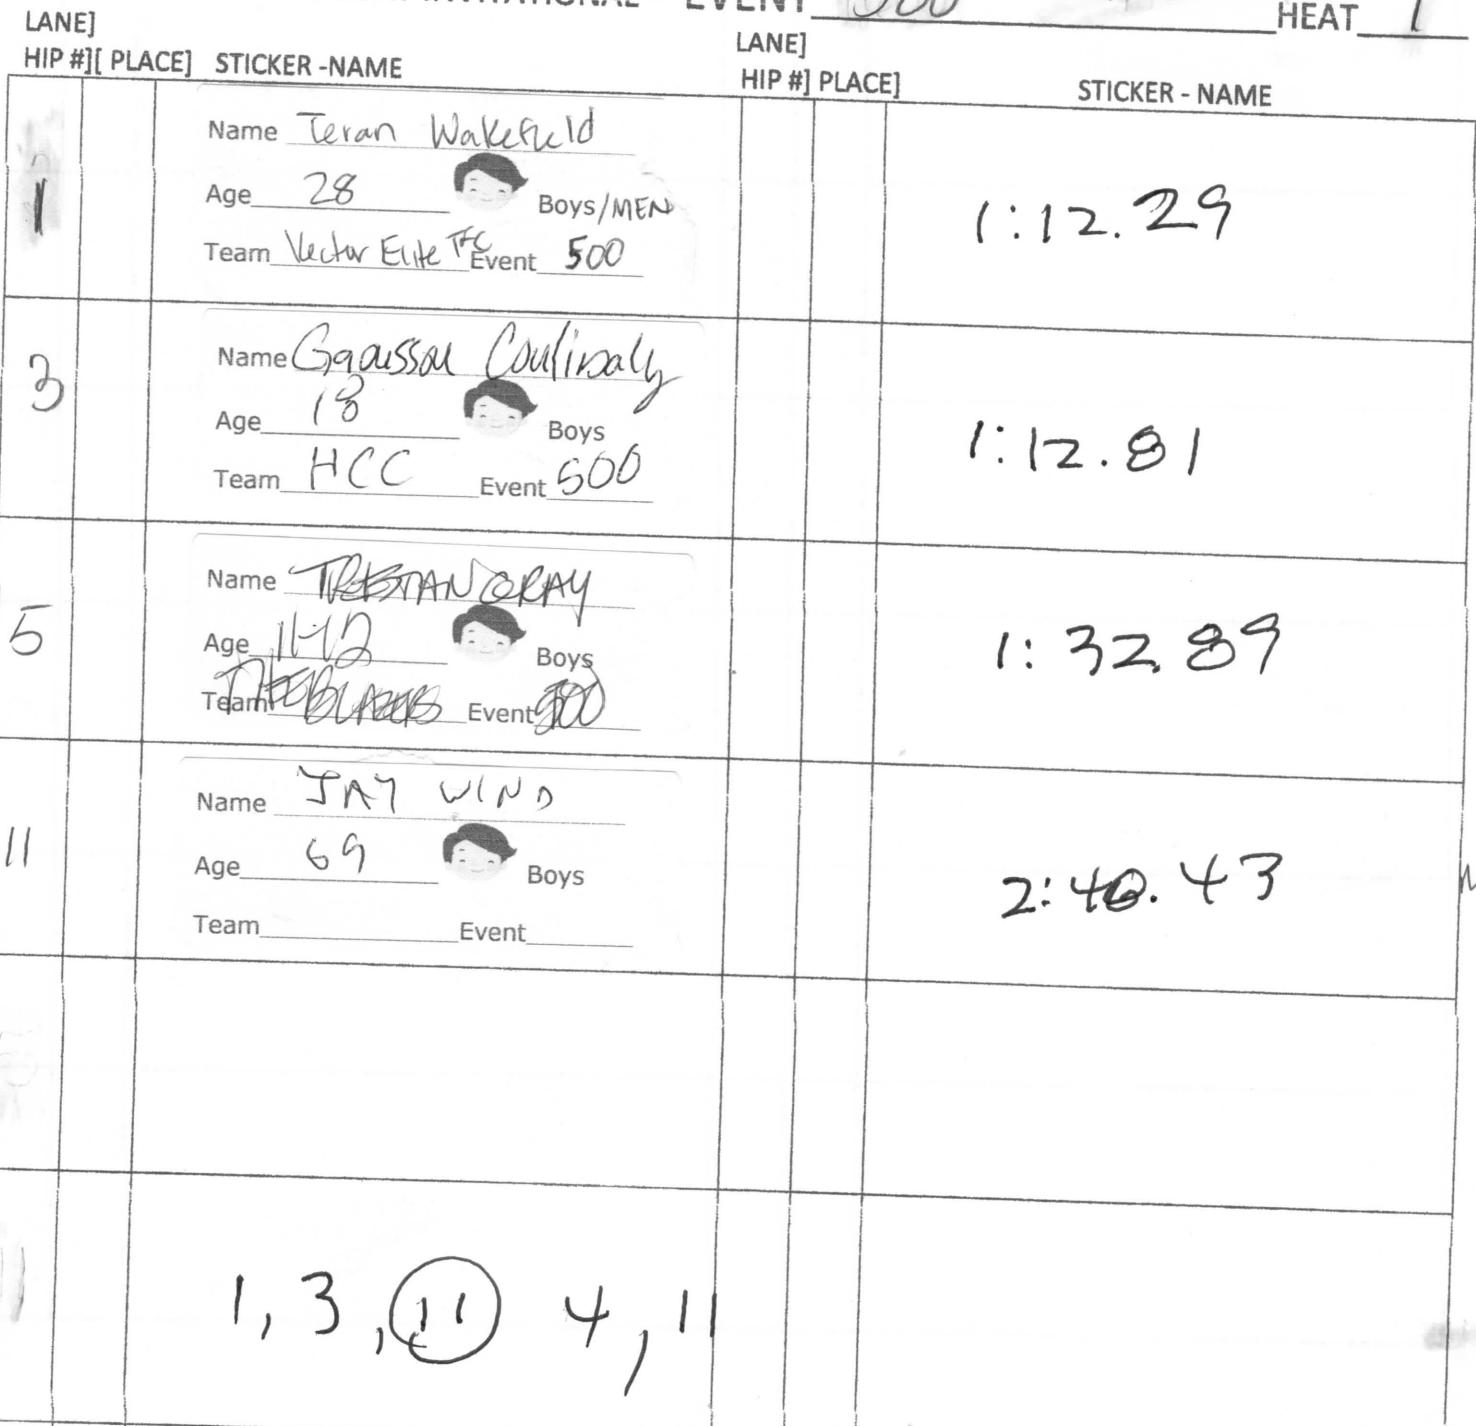 EVENT 500 HEAT 1
LANE]
HIP #][ PLACE] STICKER -NAME
LANE]
HIP #] PLACE] STICKER - NAME
1
Name Teran Wakefield
Age 28 Boys/MEN
Team Vector Elite TFC Event 500
1:12.29
3
Name Gaoussou Coulibaly
Age 18 Boys
Team HCC Event 500
1:12.81
5
Name TRISTAN GRAY
Age 11-12 Boys
Team Event 500
1:32.89
11
Name JAY WIND
Age 69 Boys
Team Event
2:40.43
1, 3, 11 4, 11